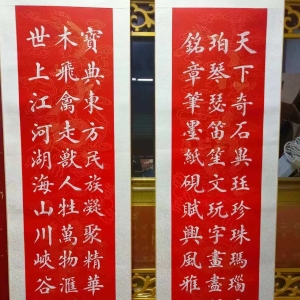 天下奇石異珏珍珠瑪瑙
珀琴瑟笛笙文玩字畫盡
銘章筆墨紙硯賦興風雅
寶典東方民族凝聚精華
木飛禽走獸人牲萬物匯
世上江河湖海山川峽谷